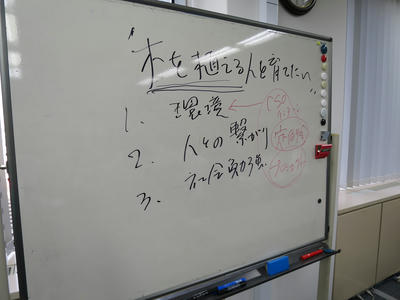 "木を植える人を育てたい"
1. 環境
2. 人との繋がり
3. 社会勉強
CSO